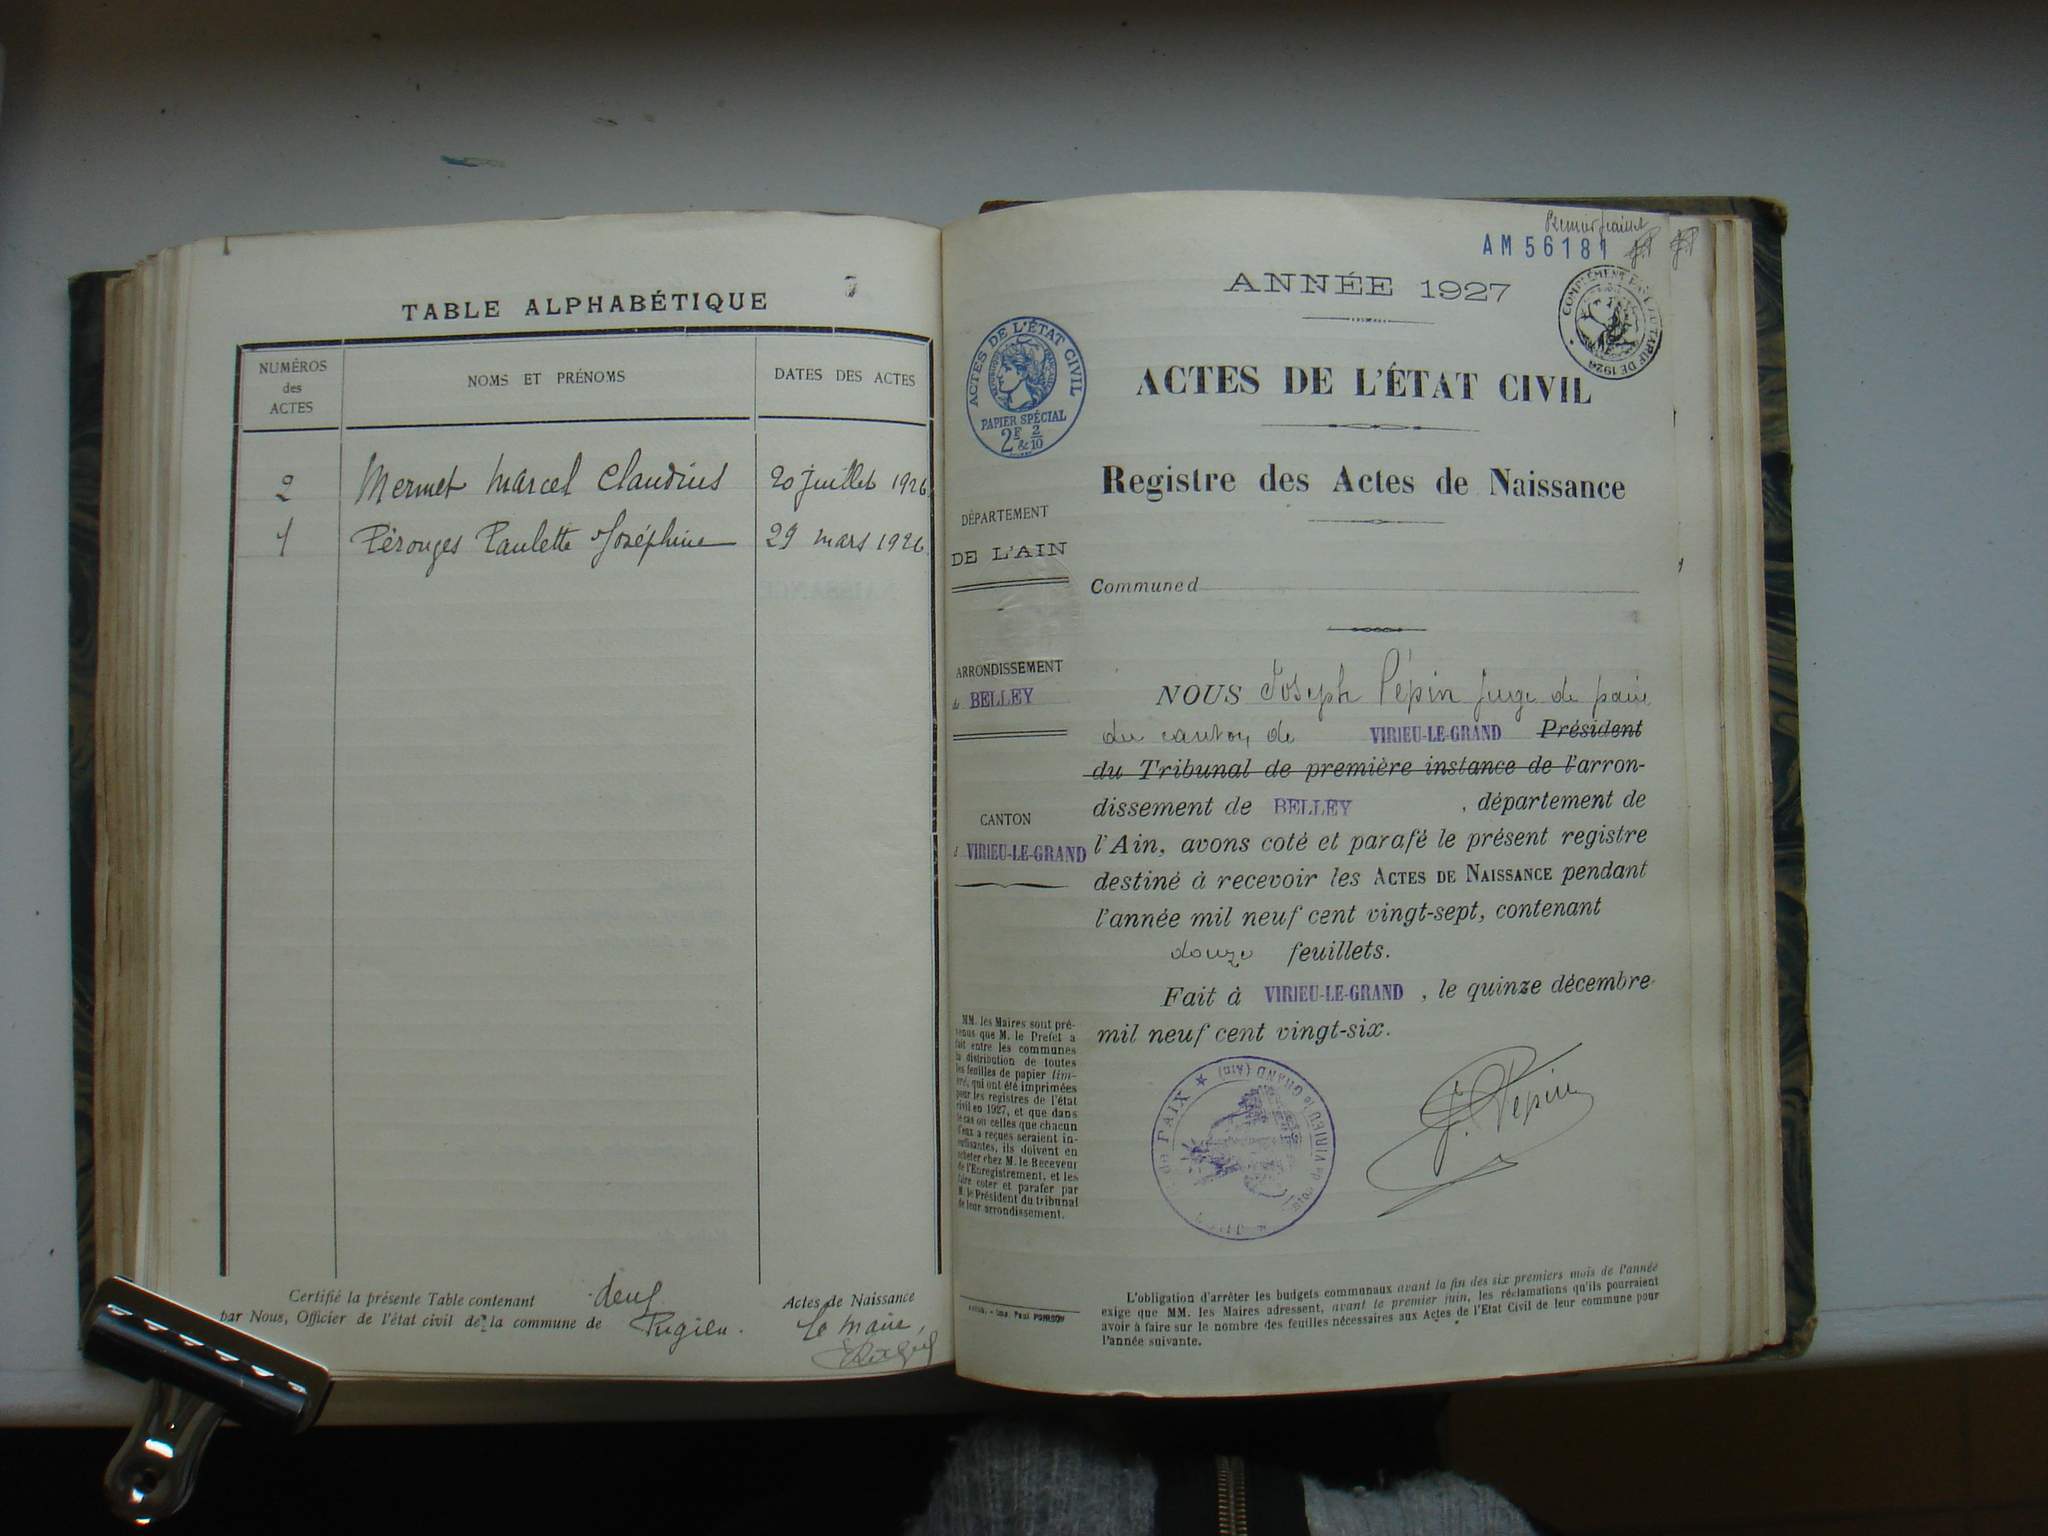 TABLE ALPHABÉTIQUE
NUMÉROS
des
ACTES
NOMS ET PRÉNOMS
DATES DES ACTES
2 Mermet Marcel Claudius 20 juillet 1926
1 Pérouges Paulette Joséphine 29 mars 1926
Certifié la présente Table contenant deux Actes de Naissance
par Nous, Officier de l'état civil de la commune de Pugieu. Le Maire,
Premier feuillet
AM 56181
ANNÉE 1927
COMPLÉMENT TARIF DE 1926
ACTES DE L'ÉTAT CIVIL
PAPIER SPÉCIAL
2F & 2/10
ACTES DE L'ÉTAT CIVIL
Registre des Actes de Naissance
DÉPARTEMENT
DE L'AIN
Commune d
ARRONDISSEMENT
de BELLEY
CANTON
d VIRIEU-LE-GRAND
NOUS Joseph Pépin juge de paix
du canton de VIRIEU-LE-GRAND Président
du Tribunal de première instance de l'arron-
dissement de BELLEY, département de
l'Ain, avons coté et parafé le présent registre
destiné à recevoir les ACTES DE NAISSANCE pendant
l'année mil neuf cent vingt-sept, contenant
douze feuillets.
Fait à VIRIEU-LE-GRAND, le quinze décembre
mil neuf cent vingt-six.
J. Pépin
MM. les Maires sont pré-
venus que M. le Préfet a
fait entre les communes
la distribution de toutes
les feuilles de papier tim-
bré, qui ont été imprimées
pour les registres de l'état
civil en 1927, et que dans
le cas où celles que chacun
d'eux a reçues seraient in-
suffisantes, ils doivent en
acheter chez M. le Receveur
de l'Enregistrement, et les
faire coter et parafer par
M. le Président du tribunal
de leur arrondissement.
de PAIX ★ VIRIEU le GRAND (Ain)
Imp. Paul
L'obligation d'arrêter les budgets communaux avant la fin des six premiers mois de l'année
exige que MM. les Maires adressent, avant le premier juin, les réclamations qu'ils pourraient
avoir à faire sur le nombre des feuilles nécessaires aux Actes de l'Etat Civil de leur commune pour
l'année suivante.